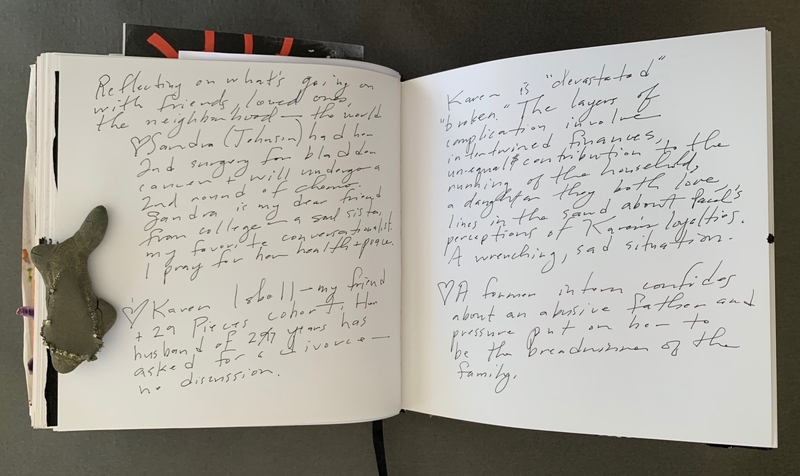 Reflecting on what's going on
with friends, loved ones,
the neighborhood — the world
♡Sandra (Johnson) had her
2nd surgery for bladder
cancer + will undergo a
2nd round of chemo.
Sandra is my dear friend
from college — a soul sister,
my favorite conversationalist.
I pray for her health + peace.
♡Karen Isbell — my friend
+ 29 Pieces cohort. Her
husband of 29 years has
asked for a divorce —
no discussion.
Karen is "devastated"
"broken." The layers of
complication involve
intertwined finances,
unequal $ contribution to the
running of the household,
a daughter they both love,
lines in the sand about Paul's
perceptions of Karen's loyalties.
A wrenching, sad situation.
♡A former intern confides
about an abusive father and
pressure put on her to
be the breadwinner of the
family.